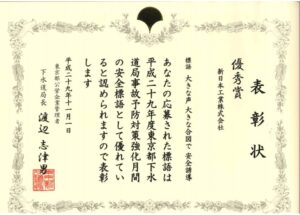 表彰状
優秀賞
新日本工業株式会社
標語 大きな声 大きな合図で 安全誘導
あなたの応募された標語は
平成二十九年度東京都下水
道局事故予防対策強化月間
の安全標語として優れてい
ると認められますので表彰
します
平成二十九年十一月一日
東京都公営企業管理者
下水道局長 渡辺志津男